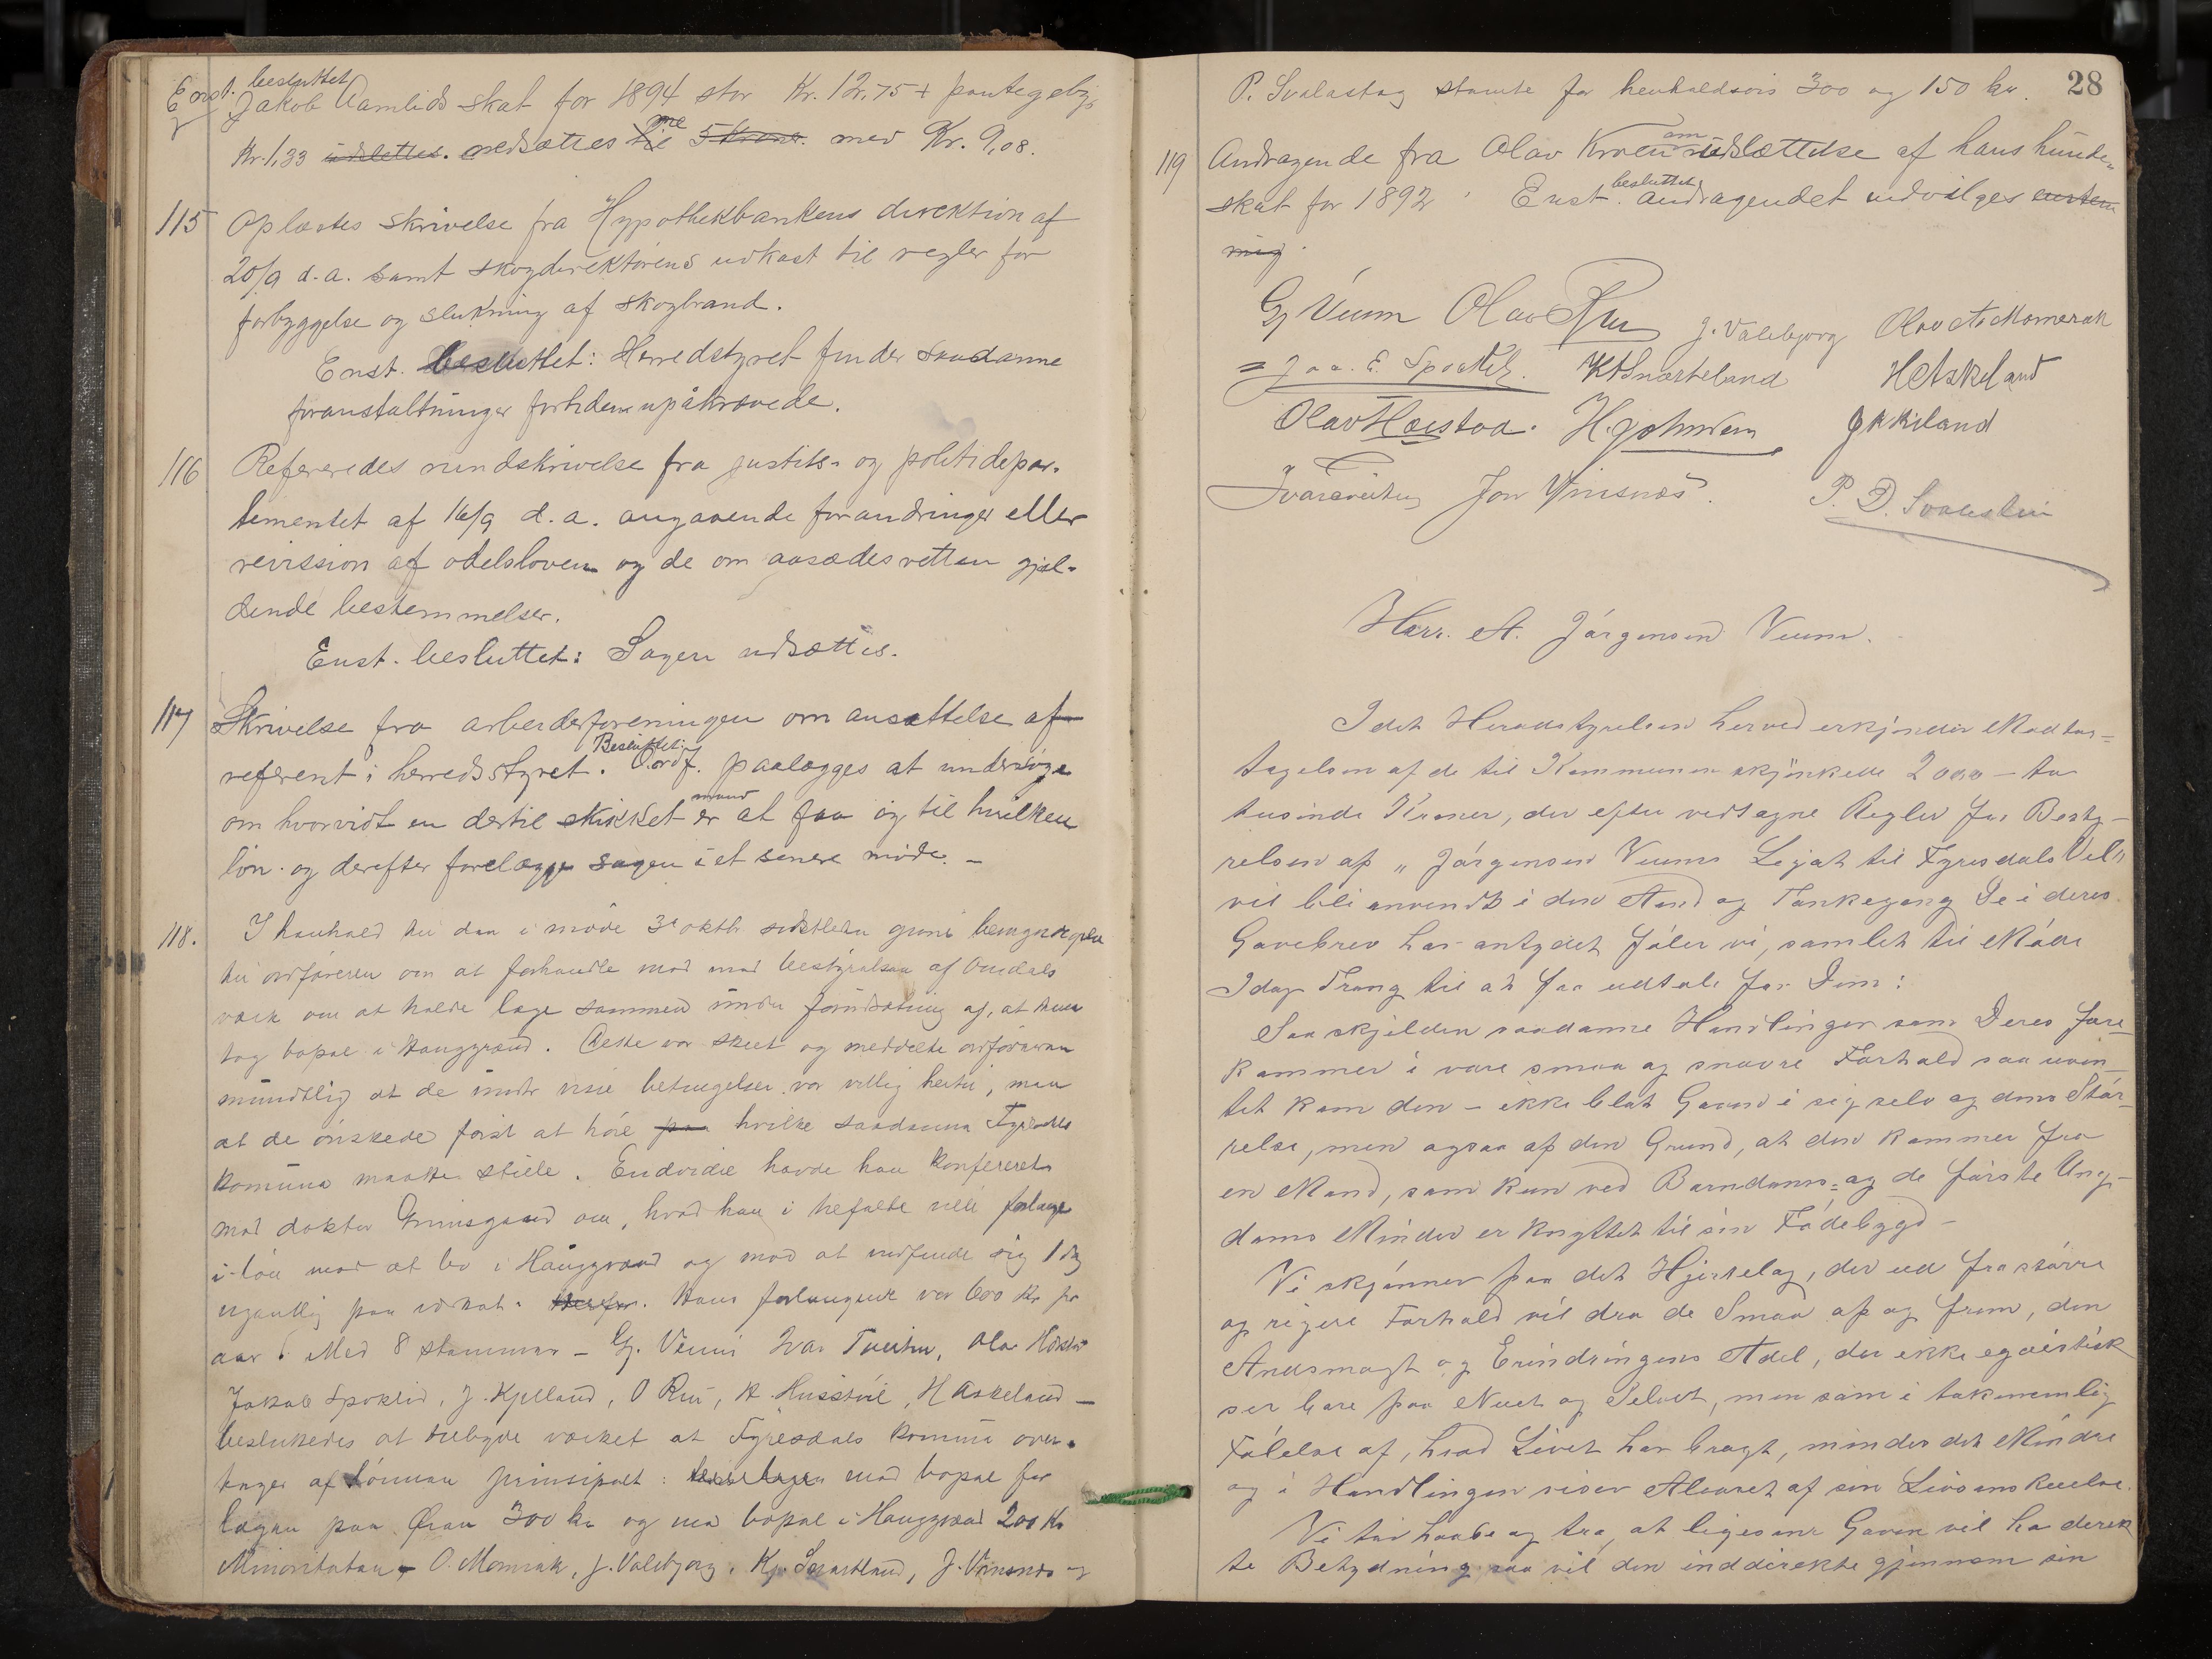 Enst. besluttet
Jakob Aamlids skat for 1894 stor Kr. 12,75 + pantegebyr
Kr. 1,33 udslettes. nedsættes til 5 kroner. med Kr. 9,08.
115 Oplæstes skrivelse fra Hypothekbankens direktion af
20/9 d.a. samt skogdirektørens udkast til regler for
forbyggelse og slukning af skogbrand.
Enst. besluttet: Herredstyret finder saadanne
foranstaltninger fortiden upåkrævede.
116 Refereredes rundskrivelse fra justits- og politidepar-
tementet af 16/9 d.a. angaaende forandringer eller
revission af odelsloven og de om aasædesretten gjæl-
dende bestemmelser.
Enst. besluttet: Sagen udsættes.
117 Skrivelse fra arbeiderforeningen om ansættelse af
referent i herredsstyret. Besluttet: Ordf. paalægges at undersøge
om hvorvidt en dertil skikket mand er at faa og til hvilken
løn og derefter forelægge sagen i et senere møde. –
118. I henhold til den i møde 3 oktbr. sidstleden givne
til ordføreren om at forhandle med bestyrelsen af Omdals
værk om at holde læge sammen under forudsætning af, at denne
tog bopæl i Hauggrænd. Dette var skeet og meddelte ordføreren
mundtlig at de under visse betingelser var villig hertil, men
at de ønskede først at høre paa hvilke saadanne Fyresdals
komune maatte stille. Endvidere havde han konfereret
med doktor Grimsgaard om, hvad han i tilfælde ville forlange
i løn med at bo i Hauggrænd og med at indfinde sig 1 dag
ugentlig paa Herfor. Hans forlangende var 600 Kr pr
aar. Med 8 stemmer – Gj. Veum Ivar Tveiten, Olav Høistad
Jakob Spoklid, J. Kjilland, O Rui, H. Husstøil, H Askeland –
besluttedes at tilbyde værket at Fyresdals komune over-
tager af lønnen prinsipalt: med bopæl for
lægen paa Øren 300 kr og med bopæl i Hauggrænd 200 Kr
Minoriteten – O. Momrak, J. Valebjorg, Kj. Snartland, J. Vinsnes og
28
P. Svalastog stemte for henholdsvis 300 og 150 kr.
119 Andragende fra Olav Kroen om udslættelse af hans hunde-
skat for 1892. Enst. besluttet andragendet indvilges enstem
mig.
Gj Veum Olav Rui J. Valebjorg Olav A. Momrak
Jac. E. Spoklid. K T Snarteland H Askeland
Olav Høistad. H. Johnsen J K Kiland
Ivar Tveiten Jon Vinsnæs. P. D. Svalestein
Herr. A. Jørgensen Veum.
Idet Heredstyrelsen herved erkjender Modta-
tagelsen af de til Kommunen skjænkede 2000 – to
tusinde Kroner, der efter vedtagne Regler for Besty-
relsen af „Jørgensen Veums Legat til Fyresdals Vel"
vil bli anvendt i den Aand og Tankegang De i deres
Gavebrev har antydet føler vi, samlet til Møde
Idag Trang til at faa udtale for Dem:
Saa skjelden saadanne Handlinger som Deres fore-
kommer i vore smaa og snævre Forhold saa uven-
tet kom den – ikke blot Gaven i sig selv og dens Stør-
relse, men ogsaa af den Grund, at den kommer fra
en Mand, som kun ved Barndoms- og de første Ung-
doms Minder er knyttet til sin Fødebygd –
Vi skjønner paa det Hjertelag, der ud fra større
og rigere Forhold vil dra de Smaa op og frem, den
Andsmagt og Erindringens Adel, der ikke egoistisk
ser bare paa Nuet og Selvet, men som i taknemlig
Følelse af, hvad Livet har bragt, minder det Mindre
og i Handlingen viser Alvoret af sin Livsanskuelse.
Vi tør haabe og tro, at ligesom Gaven vil ha direk
te Betydning saa vil den inddirekte gjennem sin